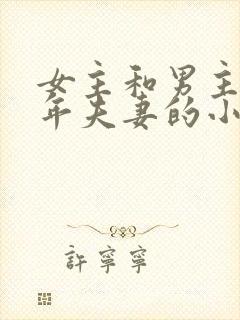 女主和男主
年夫妻的小
許寧寧